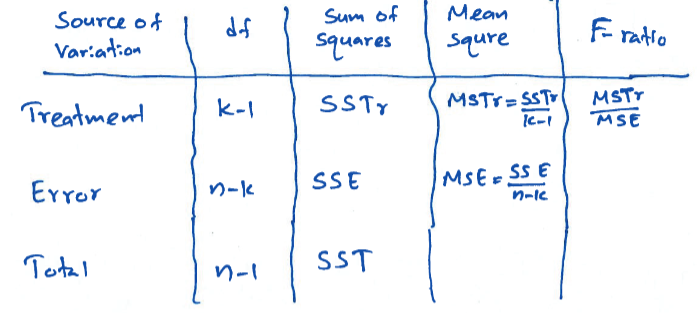 Source of Variation | df | Sum of squares | Mean squre | F- ratio
Treatment | k-1 | SSTr | MSTr = SSTr/k-1 | MSTr/MSE
Error | n-k | SSE | MSE = SSE/n-k
Total | n-1 | SST